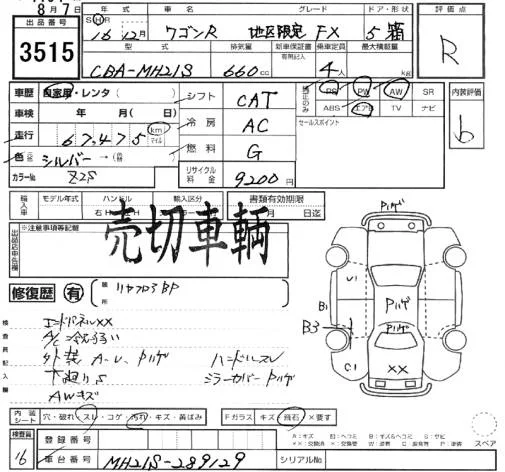 8月7日
出品番号
3515
年式 車名 グレード ドア・形状
SHR 16年 12月 ワゴンR 地区限定 FX 5 箱
評価点
R
型式 排気量 新車保証書 乗車定員 最大積載量
有無記入
CBA-MH21S 660cc 4人 kg
車歴 自家用・レンタ( )
車検 年 月( )
走行 67,475 km マイル
色 シルバー→( )
カラーNo. Z2S
シフト CAT
冷房 AC
燃料 G
リサイクル料金 9200円
PS PW AW SR
ABS エアB TV ナビ
セールスポイント
内装評価
b
輸入車 モデル年式 ハンドル 輸入区分 書類有効期限
月 日迄
売切車輌
※注意事項等記載
出品店申告欄
修復歴 有 箇所 リヤフロアBP
検査員記入欄
エンドパネルXX
外装 A-U, Pハゲ
下廻りS
AWキズ
ハンドルスレ
ミラーカバーPハゲ
Pハゲ
U1
B1
B3
C1
Pハゲ
Pハゲ
XX
内装シート 穴・破れ・スレ・コゲ・汚れ・キズ・黄ばみ
Fガラス キズ・飛石・×要す
検査員 16
登録番号
車台番号 MH21S-289129
シリアルNo.
A:キズ E:エクボ B:キズ&ヘコミ S:サビ
スペア